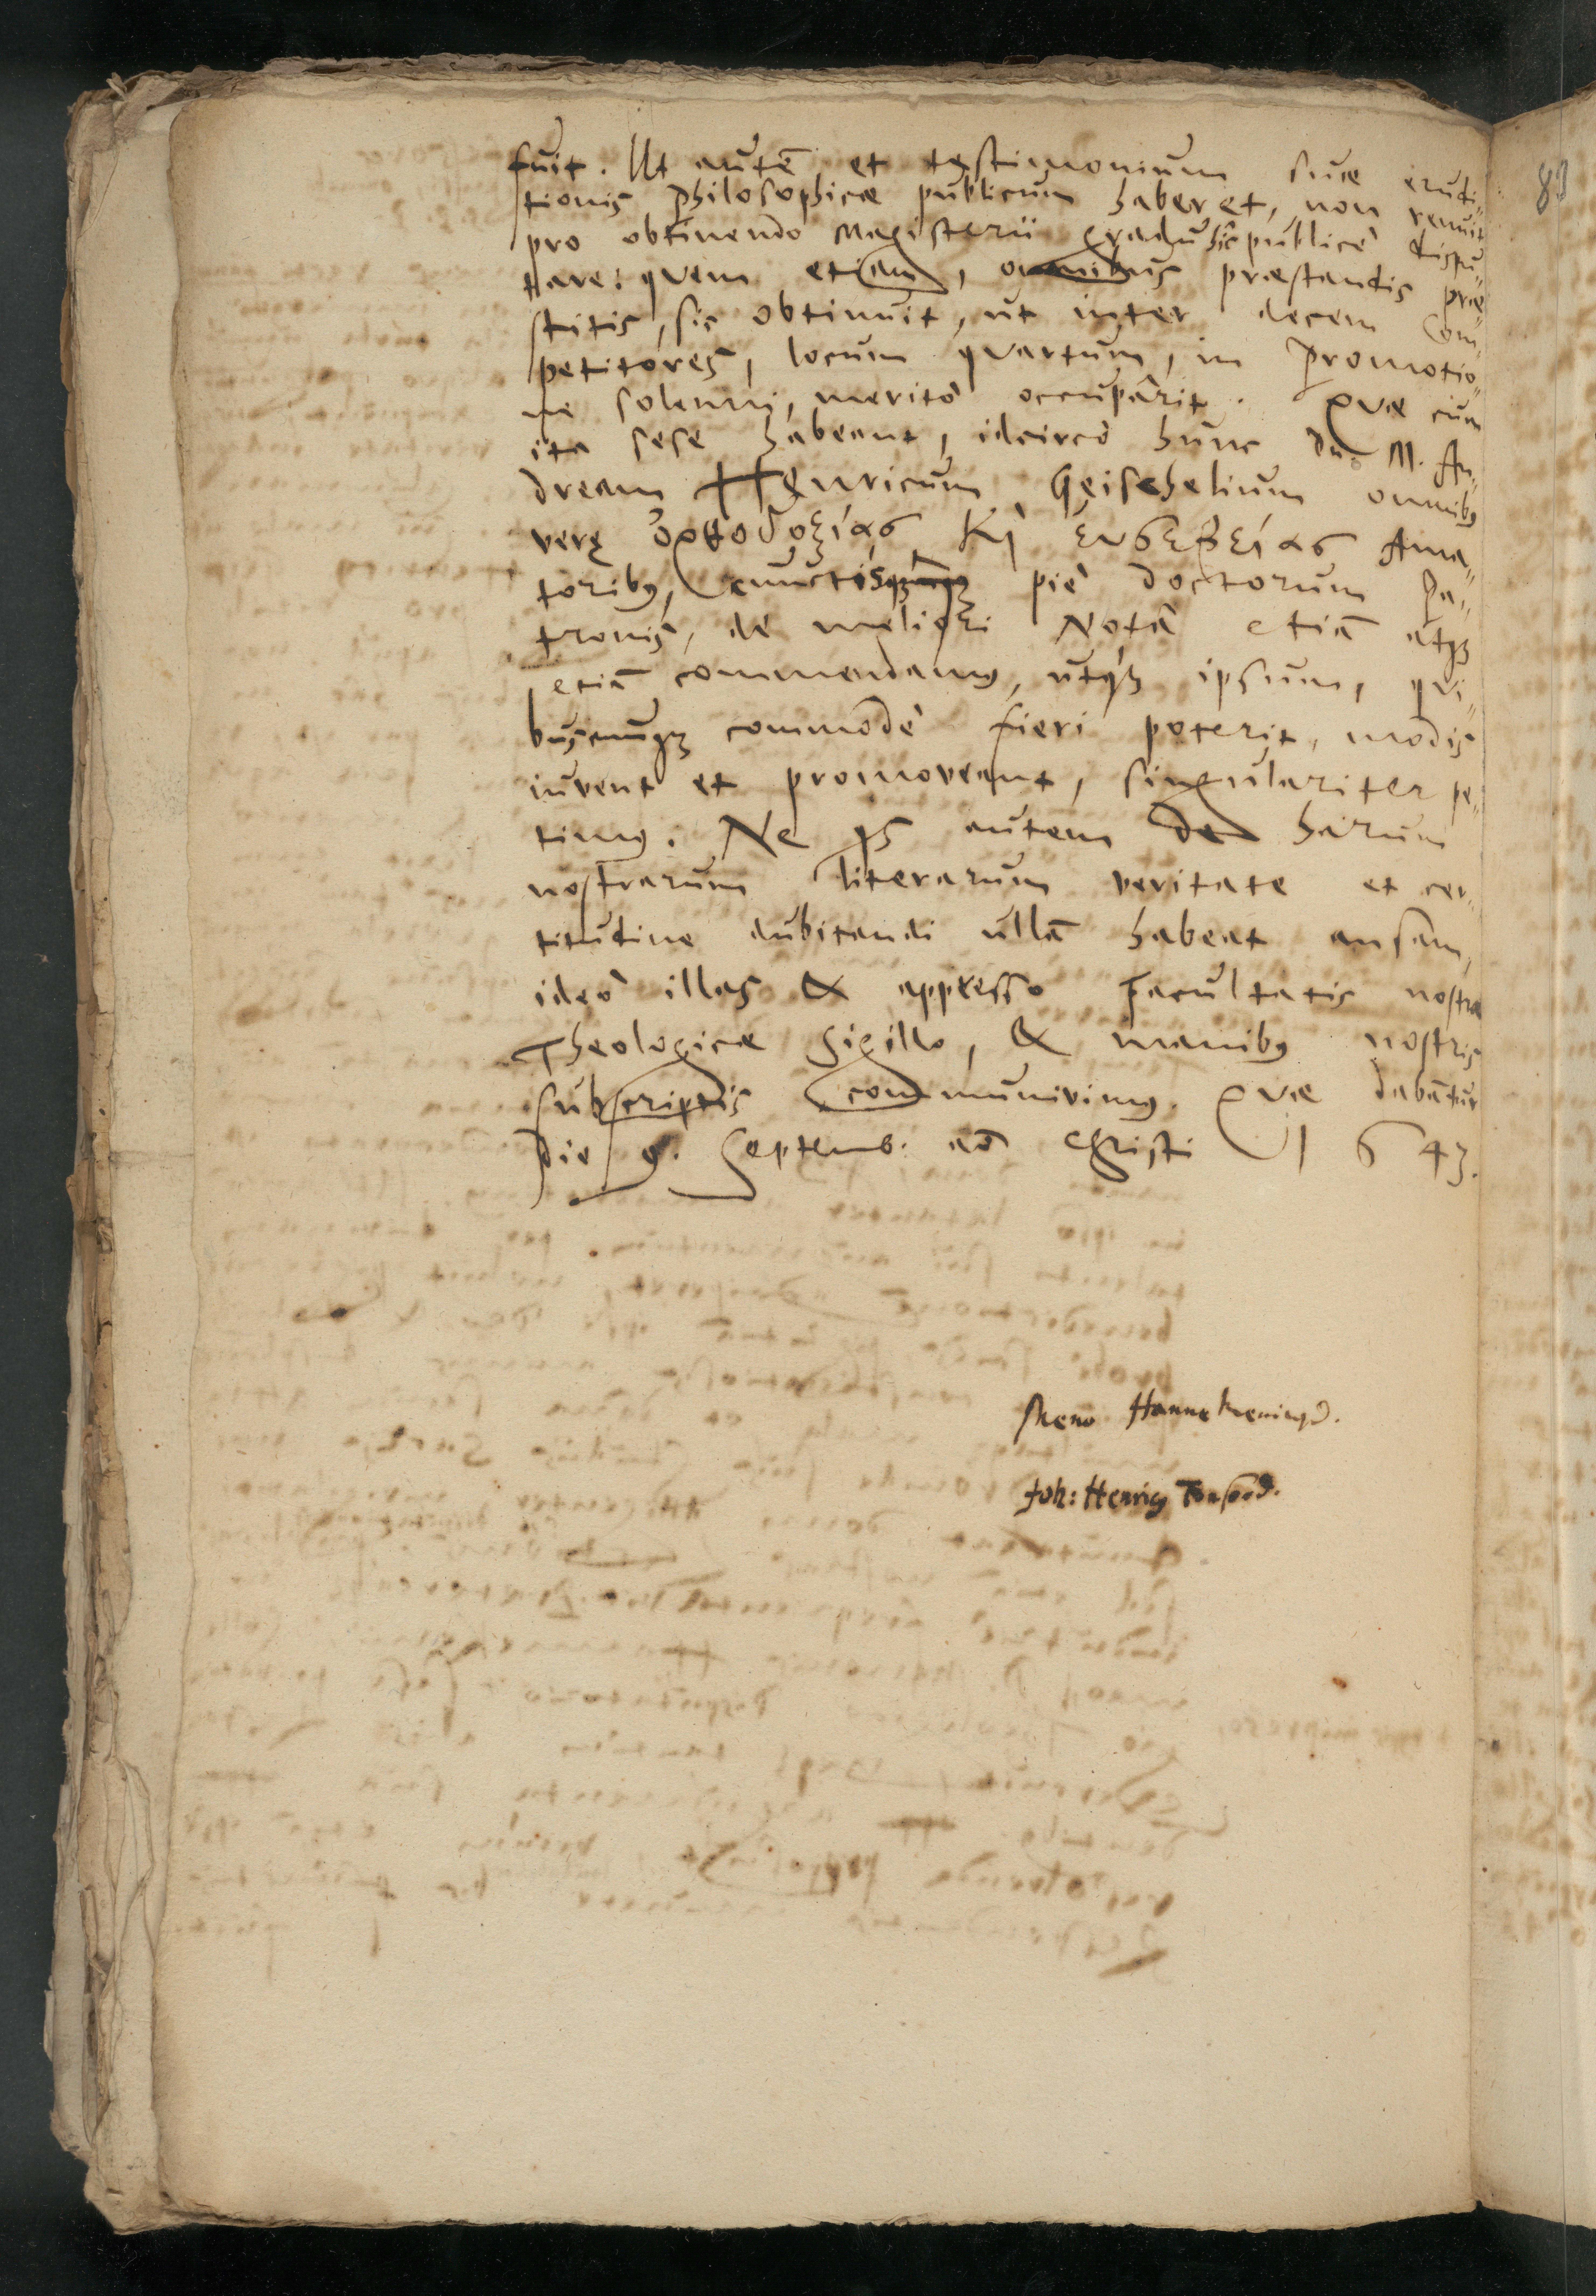 fuit. Ut autē et testimonium suæ erudi-
tionis Philosophicæ publicum haberet, non renuit
pro obtinendo Magisterii gradu hîc publicè dispu-
tare: qvem etiam, omnibus præstandis præ
stitis, sic obtinuit, ut inter decem Com-
petitores, locum qvartum, in Promotio-
ne solenni, meritò occupârit. Qvæ cum
ita sese habeant, idcircò hunc Dn. M. An-
dream Henricum Geischelium omnibꝰ
verę ὀρθοδοξίας Κὶ ἐυσεβείας Ama-
toribꝰ, cunctisqꝫ piè doctorum Pa-
tronis, de meliori Notâ etiā atqꝫ
etiā commendamꝰ, utqꝫ ipsum, qvi-
buscunqꝫ commodè fieri poterit, modis
iuvent et promoveant, singulariter pe-
timꝰ. Ne qs autem de harum
nostrarum literarum veritate et cer-
titudine dubitandi ullā habeat ansam,
ideò illas & appresso Facultatis nostræ
Theologicæ Sigillo, & manibꝰ nostris
subscriptis communivimꝰ. Qvæ dabātur
die 9. Septemb. aō Christi 1643.
Meno Hannekenius D.
Joh: Henricꝰ Tonsor D.
83